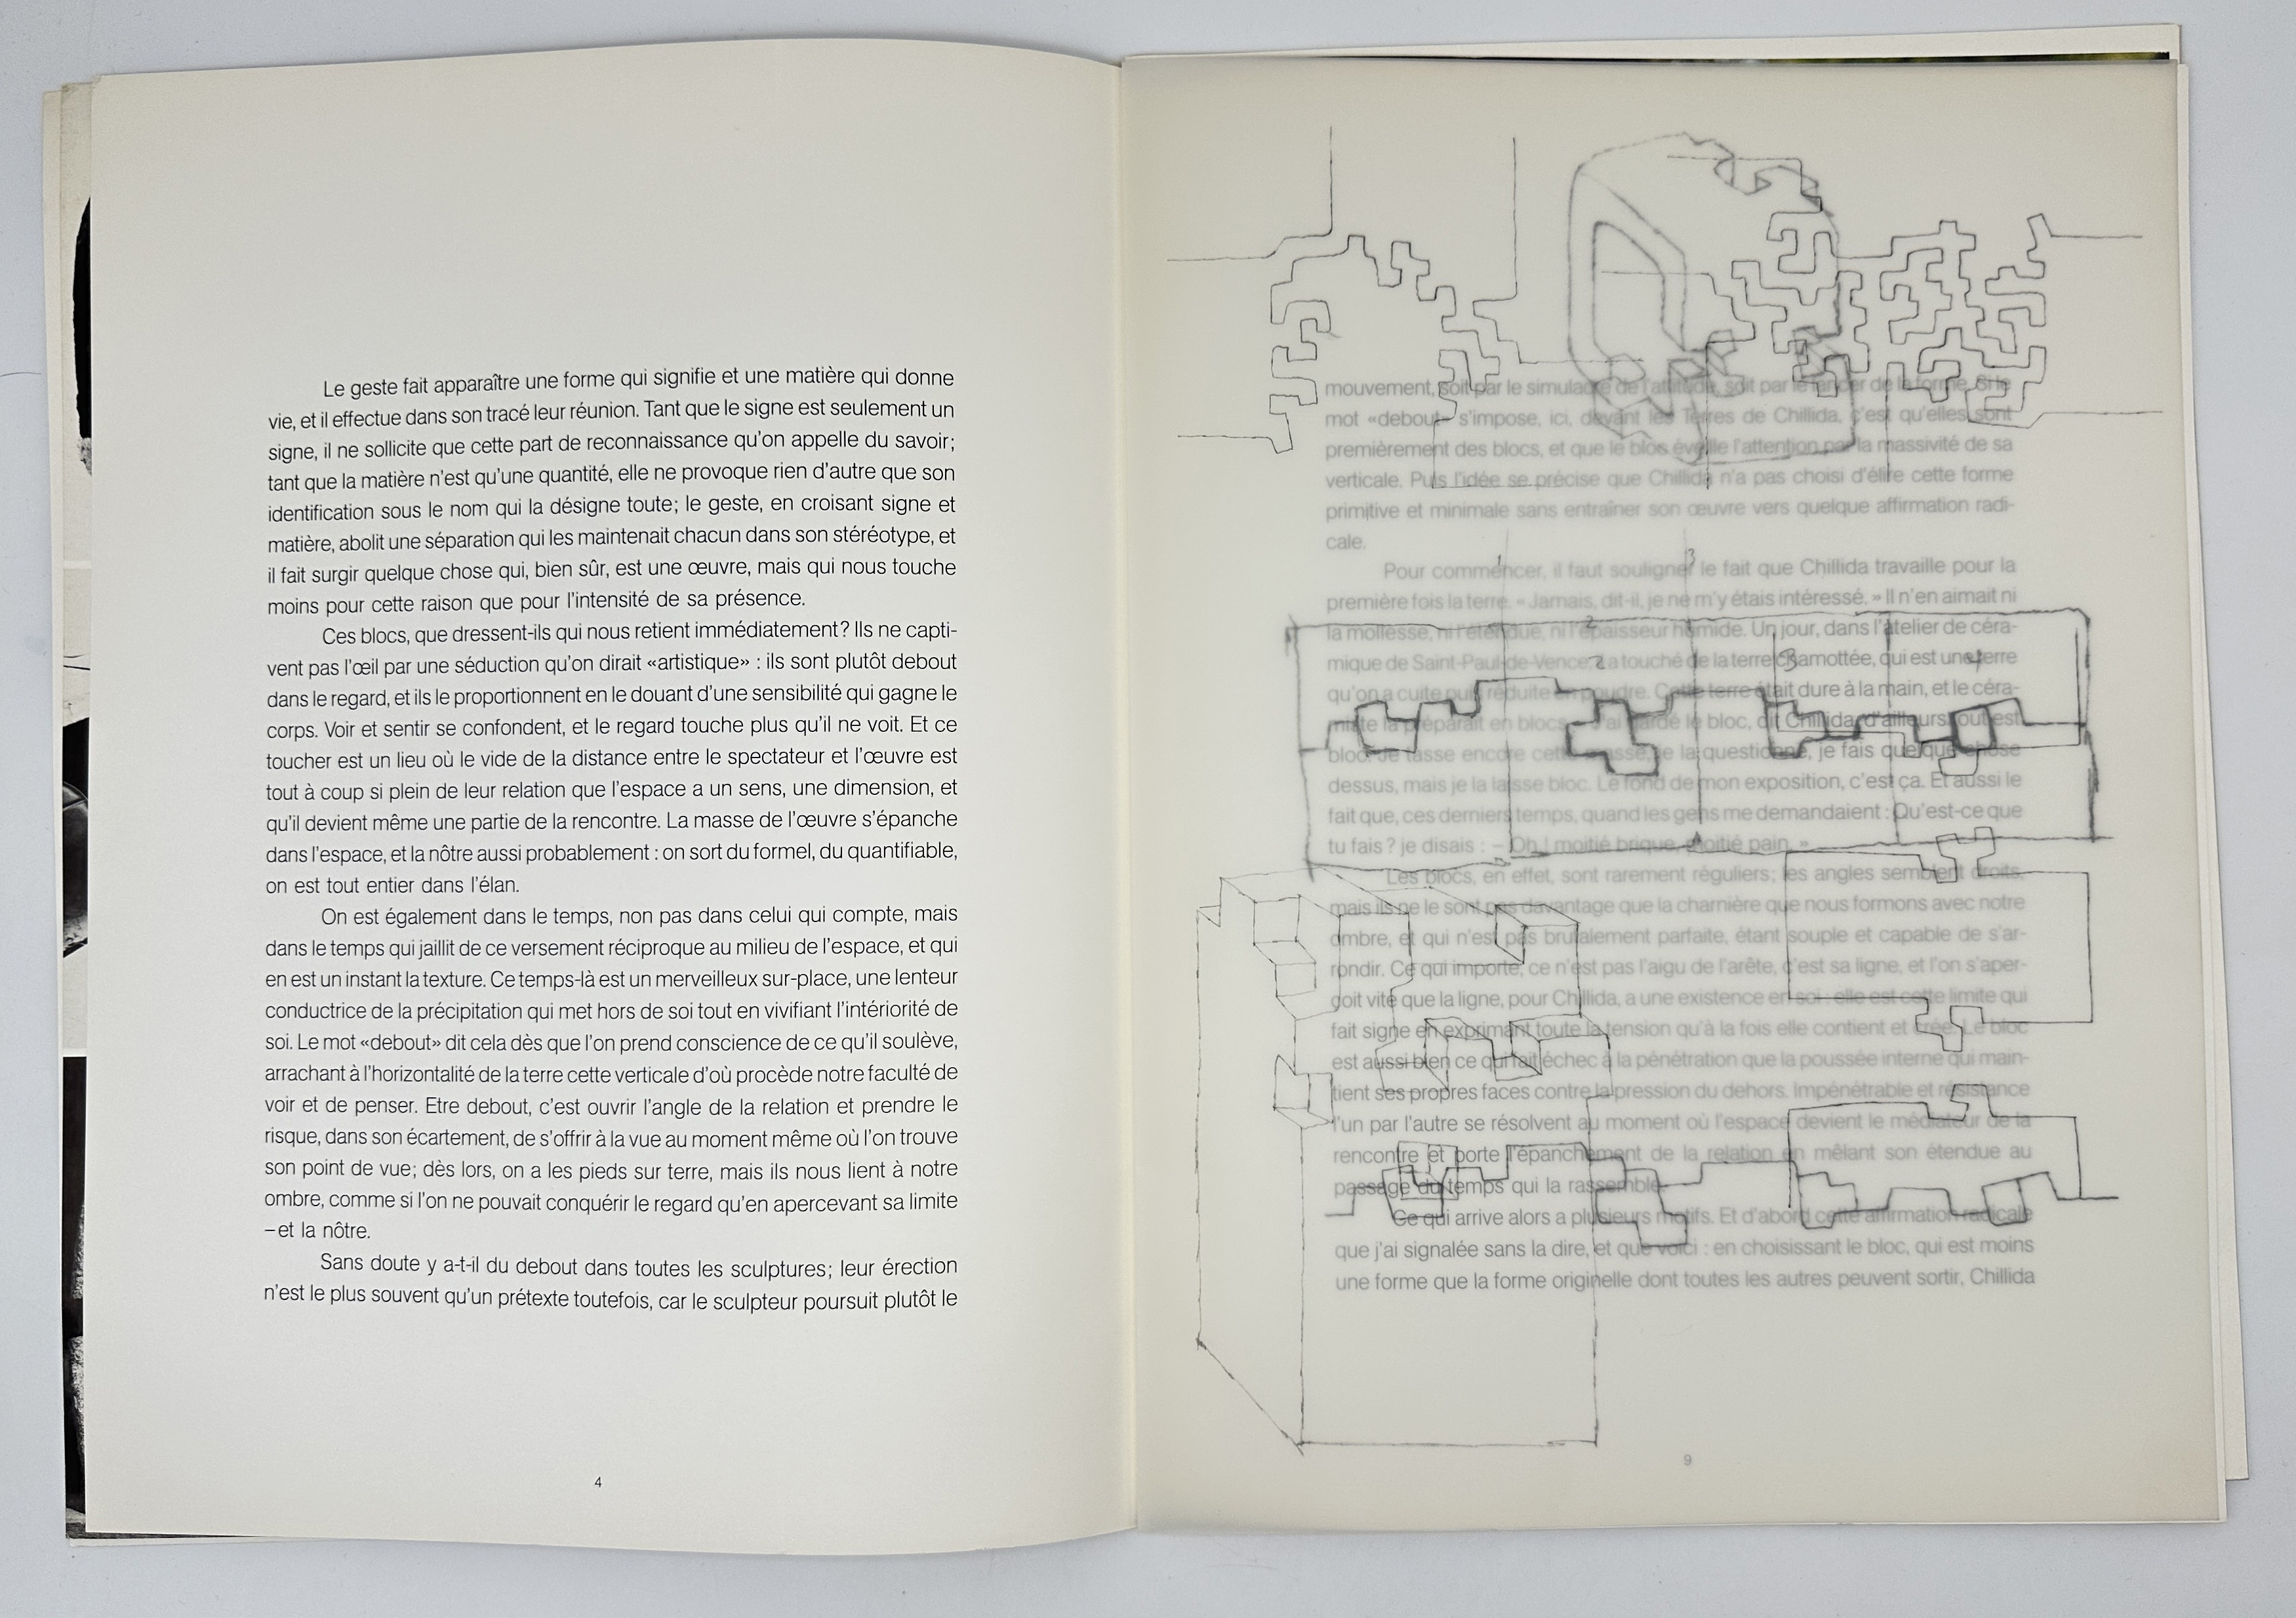 Le geste fait apparaître une forme qui signifie et une matière qui donne
vie, et il effectue dans son tracé leur réunion. Tant que le signe est seulement un
signe, il ne sollicite que cette part de reconnaissance qu'on appelle du savoir;
tant que la matière n'est qu'une quantité, elle ne provoque rien d'autre que son
identification sous le nom qui la désigne toute; le geste, en croisant signe et
matière, abolit une séparation qui les maintenait chacun dans son stéréotype, et
il fait surgir quelque chose qui, bien sûr, est une œuvre, mais qui nous touche
moins pour cette raison que pour l'intensité de sa présence.
Ces blocs, que dressent-ils qui nous retient immédiatement? Ils ne capti-
vent pas l'œil par une séduction qu'on dirait «artistique» : ils sont plutôt debout
dans le regard, et ils le proportionnent en le douant d'une sensibilité qui gagne le
corps. Voir et sentir se confondent, et le regard touche plus qu'il ne voit. Et ce
toucher est un lieu où le vide de la distance entre le spectateur et l'œuvre est
tout à coup si plein de leur relation que l'espace a un sens, une dimension, et
qu'il devient même une partie de la rencontre. La masse de l'œuvre s'épanche
dans l'espace, et la nôtre aussi probablement : on sort du formel, du quantifiable,
on est tout entier dans l'élan.
On est également dans le temps, non pas dans celui qui compte, mais
dans le temps qui jaillit de ce versement réciproque au milieu de l'espace, et qui
en est un instant la texture. Ce temps-là est un merveilleux sur-place, une lenteur
conductrice de la précipitation qui met hors de soi tout en vivifiant l'intériorité de
soi. Le mot «debout» dit cela dès que l'on prend conscience de ce qu'il soulève,
arrachant à l'horizontalité de la terre cette verticale d'où procède notre faculté de
voir et de penser. Etre debout, c'est ouvrir l'angle de la relation et prendre le
risque, dans son écartement, de s'offrir à la vue au moment même où l'on trouve
son point de vue; dès lors, on a les pieds sur terre, mais ils nous lient à notre
ombre, comme si l'on ne pouvait conquérir le regard qu'en apercevant sa limite
–et la nôtre.
Sans doute y a-t-il du debout dans toutes les sculptures; leur érection
n'est le plus souvent qu'un prétexte toutefois, car le sculpteur poursuit plutôt le
4
mouvement, soit par le simulacre de l'attitude, soit par le lancer de la forme. Si le
mot «debout» s'impose, ici, devant les Terres de Chillida, c'est qu'elles sont
premièrement des blocs, et que le bloc éveille l'attention par la massivité de sa
verticale. Puis l'idée se précise que Chillida n'a pas choisi d'élire cette forme
primitive et minimale sans entraîner son œuvre vers quelque affirmation radi-
cale.
1 3
Pour commencer, il faut souligner le fait que Chillida travaille pour la
première fois la terre. «Jamais, dit-il, je ne m'y étais intéressé.» Il n'en aimait ni
la mollesse, ni l'étendue, ni l'épaisseur humide. Un jour, dans l'atelier de céra-
mique de Saint-Paul-de-Vence, a touché de la terre chamottée, qui est une terre
qu'on a cuite puis réduite en poudre. Cette terre était dure à la main, et le céra-
miste la préparait en blocs. J'ai gardé le bloc, dit Chillida, d'ailleurs tout est
bloc. Je tasse encore cette masse, je la questionne, je fais quelque chose
dessus, mais je la laisse bloc. Le fond de mon exposition, c'est ça. Et aussi le
fait que, ces derniers temps, quand les gens me demandaient : Qu'est-ce que
tu fais? je disais : – Oh! moitié brique, moitié pain.»
Les blocs, en effet, sont rarement réguliers; les angles semblent droits,
mais ils ne le sont pas davantage que la charnière que nous formons avec notre
ombre, et qui n'est pas brutalement parfaite, étant souple et capable de s'ar-
rondir. Ce qui importe, ce n'est pas l'aigu de l'arête, c'est sa ligne, et l'on s'aper-
çoit vite que la ligne, pour Chillida, a une existence en soi : elle est cette limite qui
fait signe en exprimant toute la tension qu'à la fois elle contient et crée. Le bloc
est aussi bien ce qui fait échec à la pénétration que la poussée interne qui main-
tient ses propres faces contre la pression du dehors. Impénétrable et résistance
l'un par l'autre se résolvent au moment où l'espace devient le médiateur de la
rencontre et porte l'épanchement de la relation en mêlant son étendue au
passage du temps qui la rassemble.
Ce qui arrive alors a plusieurs motifs. Et d'abord cette affirmation radicale
que j'ai signalée sans la dire, et que voici : en choisissant le bloc, qui est moins
une forme que la forme originelle dont toutes les autres peuvent sortir, Chillida
9